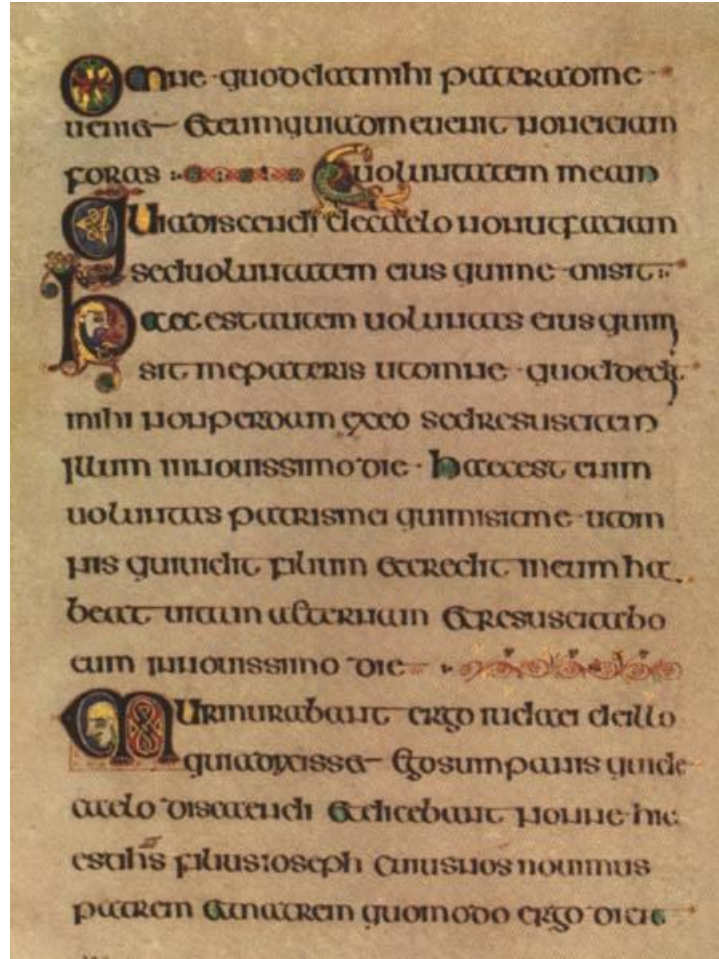 Omne quod dat mihi pater ad me
ueniet Et eum qui ad me uenit non eiciam
foras uoluntatem meam
Quia discendi de caelo non ut faciam
sed uoluntatem eius qui me misit
Haec est autem uoluntas eius qui mi
sit me pateris ut omne quod dedit
mihi non perdam ex eo sed resuscitem
illum in nouissimo die · haec est enim
uoluntas patris mei qui misit me ut om
nis qui uidit filium et credit in eum ha
beat uitam aeternam et resuscitabo
eum in nouissimo die
Murmurabant ergo iudaei de illo
quia dixisset Ego sum panis qui de
caelo discendi et dicebant nonne hic
est ihs filius ioseph cuius nos nouimus
patrem et matrem quomodo ergo dicit